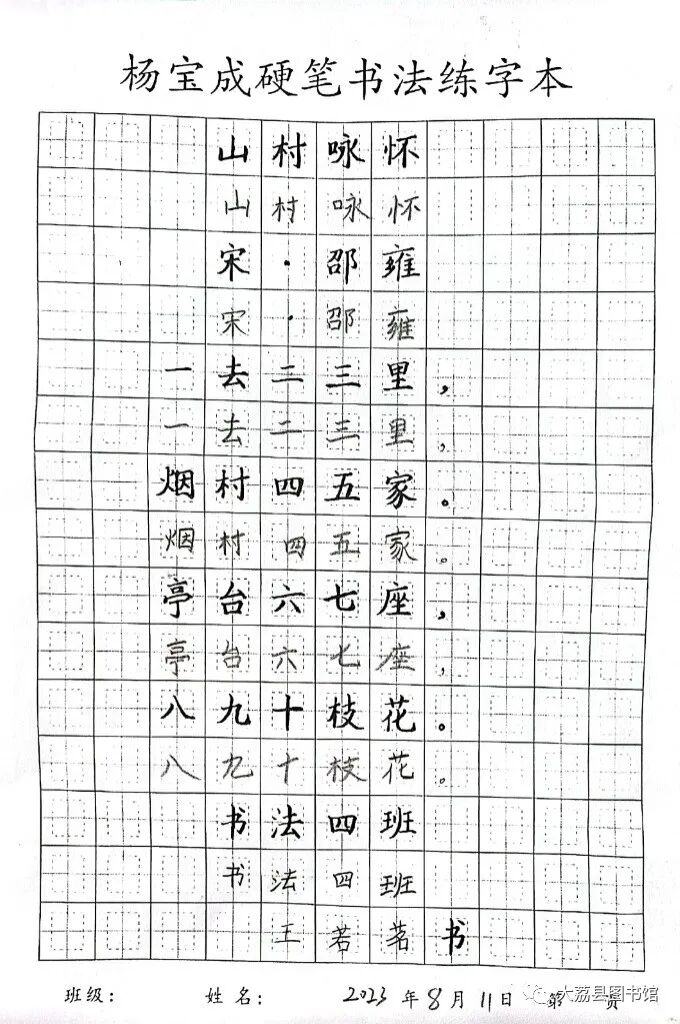 杨宝成硬笔书法练字本
山村咏怀
山村咏怀
宋·邵雍
宋·邵雍
一去二三里，
一去二三里，
烟村四五家。
烟村四五家。
亭台六七座，
亭台六七座，
八九十枝花。
八九十枝花。
书法四班
书法四班
王若茗书
班级： 姓名： 2023年8月11日 第 页
大荔县图书馆